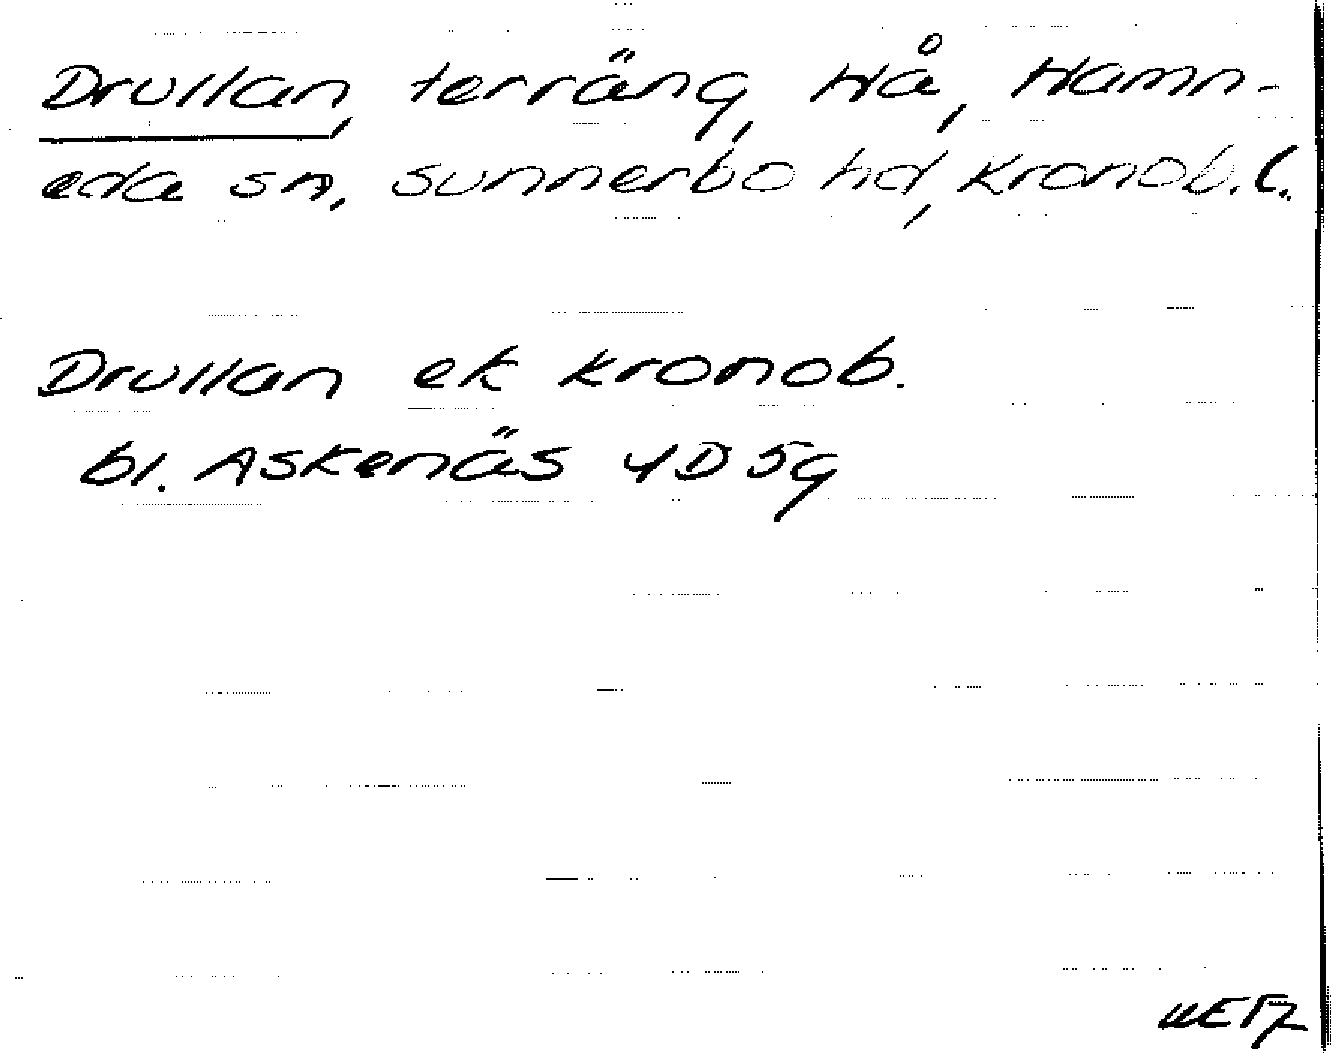 Drullan, terräng, Hå, Hamn-
eda sn, Sunnerbo hd, Kronob. l.
Drullan ek Kronob.
bl. Askenäs 4D 5g